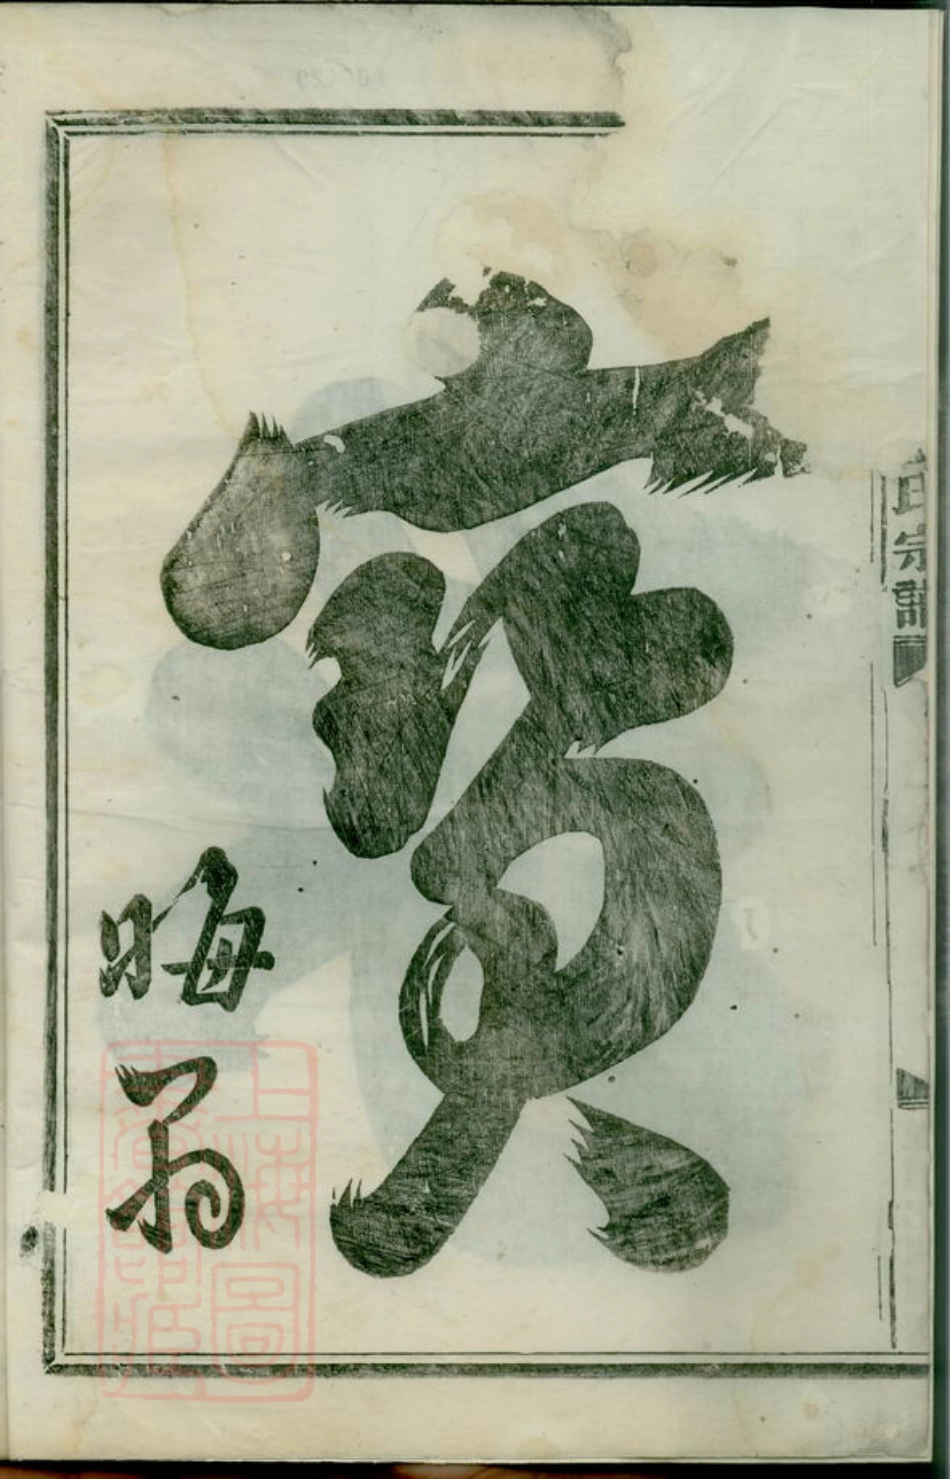 氏宗譜
寶
晦翁